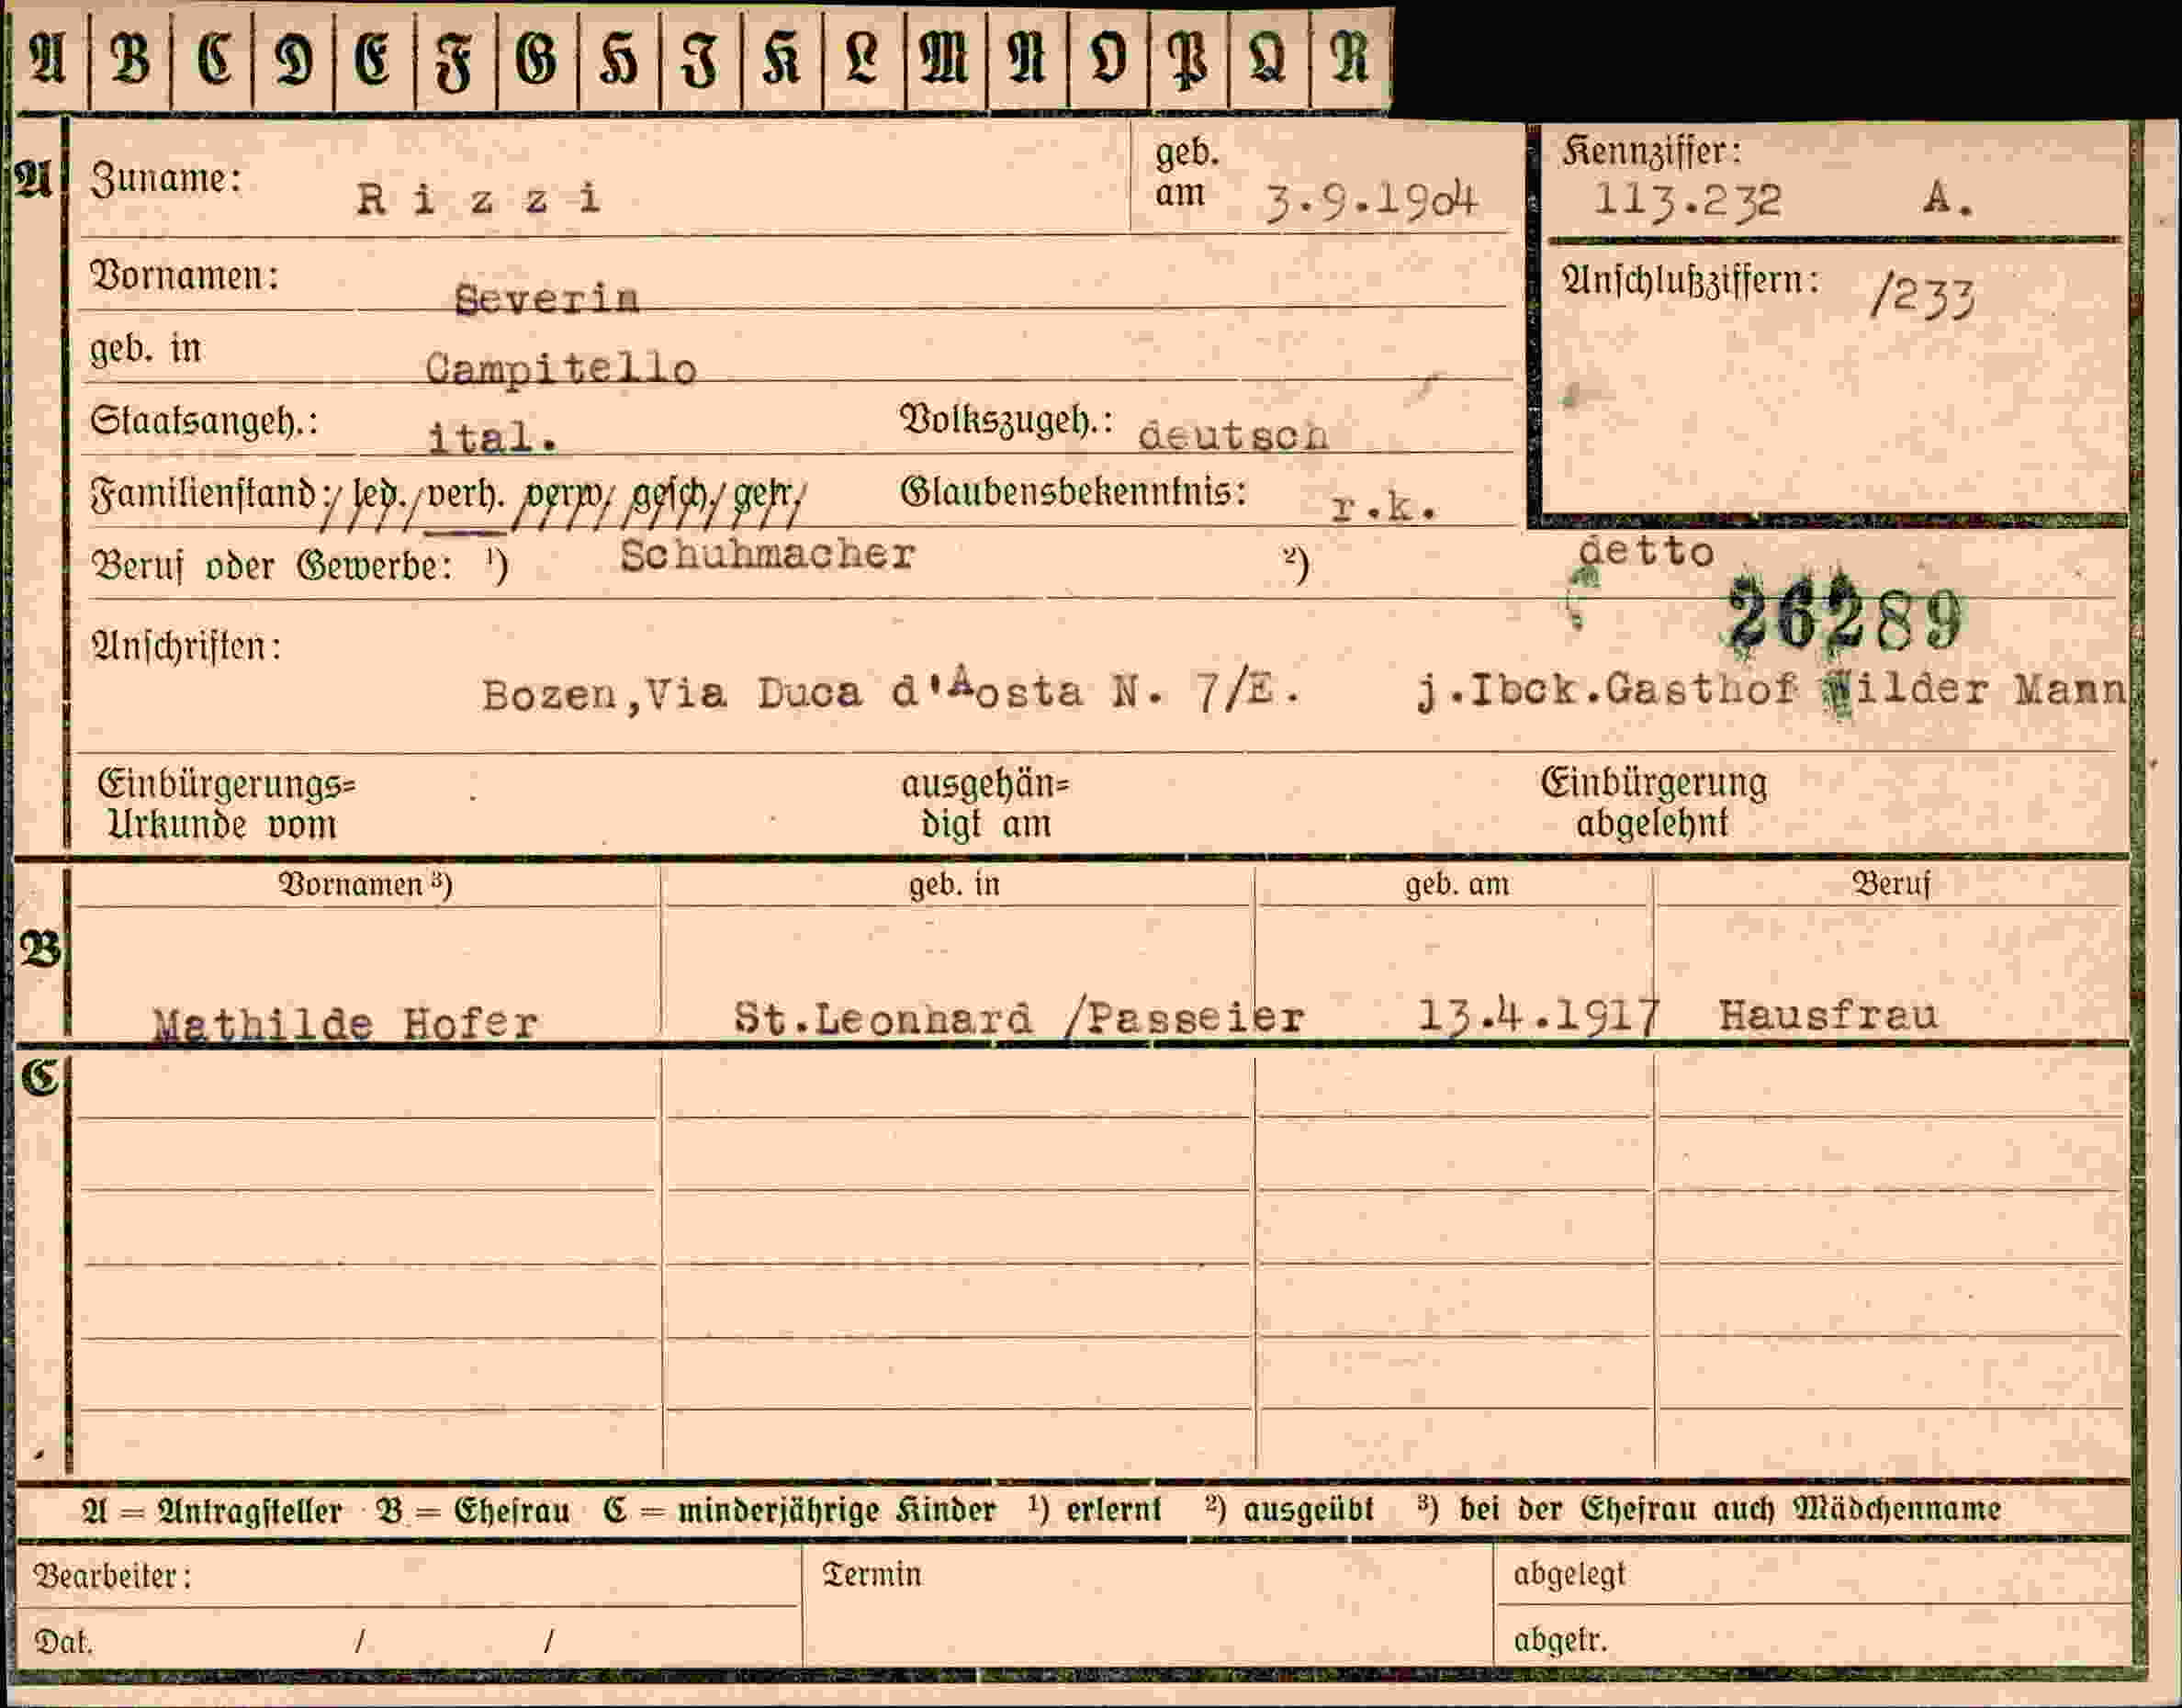 A B C D E F G H J K L M N O P Q R
A Zuname: Rizzi geb. am 3.9.1904 Kennziffer: 113.232 A.
Vornamen: Severin Anschlußziffern: /233
geb. in Campitello
Staatsangeh.: ital. Volkszugeh.: deutsch
Familienstand: led. verh. verw. gesch. getr. Glaubensbekenntnis: r.k.
Beruf oder Gewerbe: ¹) Schuhmacher ²) detto
26289
Anschriften:
Bozen,Via Duca d'Aosta N. 7/E. j.Ibck.Gasthof Wilder Mann
Einbürgerungs= ausgehän= Einbürgerung
Urkunde vom digt am abgelehnt
Vornamen ³) geb. in geb. am Beruf
B
Mathilde Hofer St.Leonhard /Passeier 13.4.1917 Hausfrau
C
A = Antragsteller B = Ehefrau C = minderjährige Kinder ¹) erlernt ²) ausgeübt ³) bei der Ehefrau auch Mädchenname
Bearbeiter: Termin abgelegt
Dat. / / abgetr.